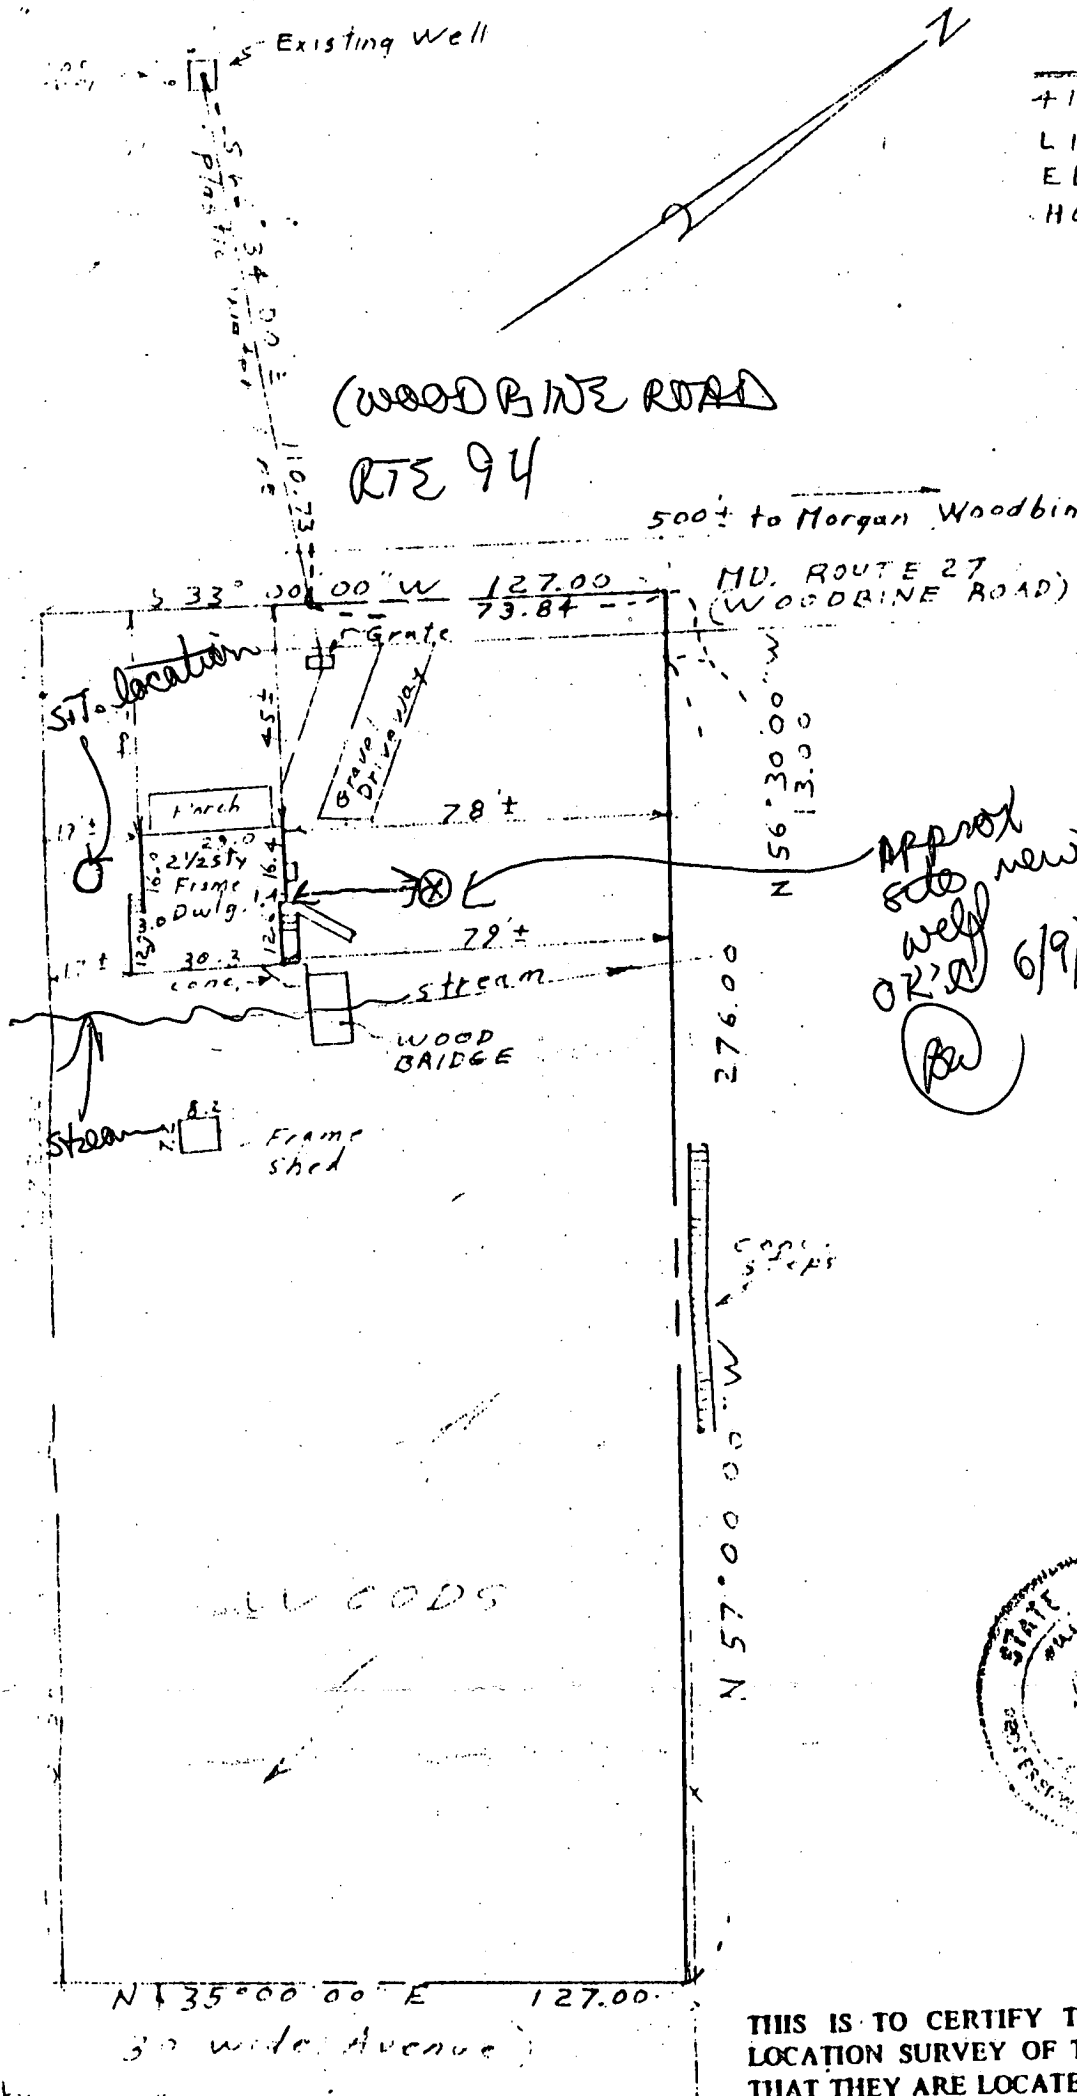 Existing Well
plastic
110.73±
(WOODBINE ROAD
RTE 94
500± to Morgan Woodbin
S 33° 00' 00" W 127.00
73.84
MD. ROUTE 27
(WOODBINE ROAD)
Grate
S.T. location
45±
Gravel
Driveway
N 56° 30' 00" W
13.00
Porch
17'±
78'±
29.0
2 1/2 sty
Frame
Dwlg.
16.0
16.4
Approx
site new
well
OK'd 6/9/
BW
12.0
79'±
17'±
30.3
conc.
stream
WOOD
BRIDGE
276.00
Stream
8.2
Frame
shed
conc.
steps
N 57° 00' 00" W
WOODS
STATE
N 35° 00' 00" E 127.00
30 wide Avenue)
THIS IS TO CERTIFY T
LOCATION SURVEY OF T
THAT THEY ARE LOCATE